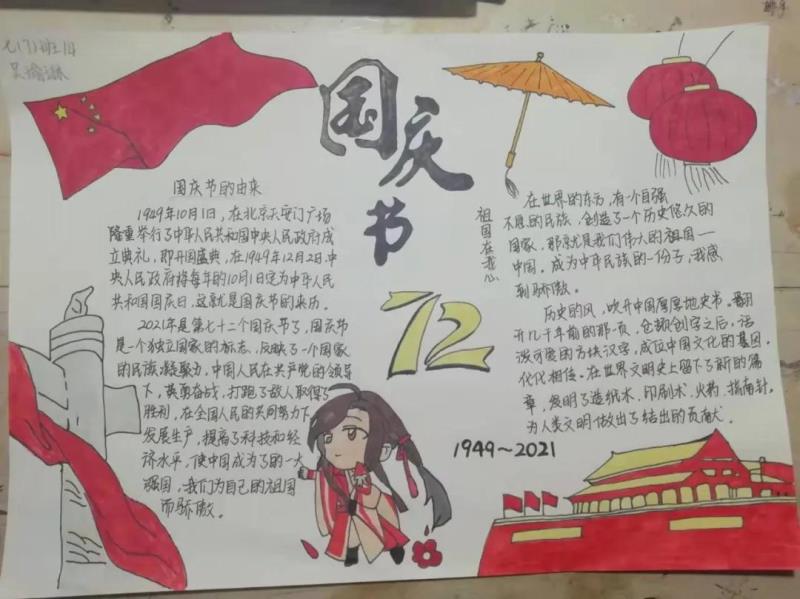 七(7)班14
国庆节
国庆节的由来
1949年10月1日，在北京天安门广场
隆重举行了中华人民共和国中央人民政府成
立典礼，即开国盛典，在1949年12月2日，中
央人民政府将每年的10月1日定为中华人民
共和国国庆日，这就是国庆节的来历。
2021年是第七十二个国庆节了，国庆节
是一个独立国家的标志，反映了一个国家
的民族凝聚力，中国人民在共产党的领导
下，英勇奋战，打跑了敌人取得了
胜利，在全国人民的共同努力下
发展生产，提高了科技和经
济水平，使中国成为了的一大
强国，我们为自己的祖国
而骄傲。
72
1949~2021
祖国在我心
在世界的东方，有一个自强
不息的民族，创造了一个历史悠久的
国家，那就是我们伟大的祖国—
中国。成为中华民族的一份子，我感
到骄傲。
历史的风，吹开中国厚厚地史书。翻
开几千年前的那一页，仓颉创字之后，活
泼可爱的方块汉字，成位中国文化的基因，
代代相传。在世界文明史上留下了新的篇
章，发明了造纸术、印刷术、火药、指南针，
为人类文明做出了结出的贡献。